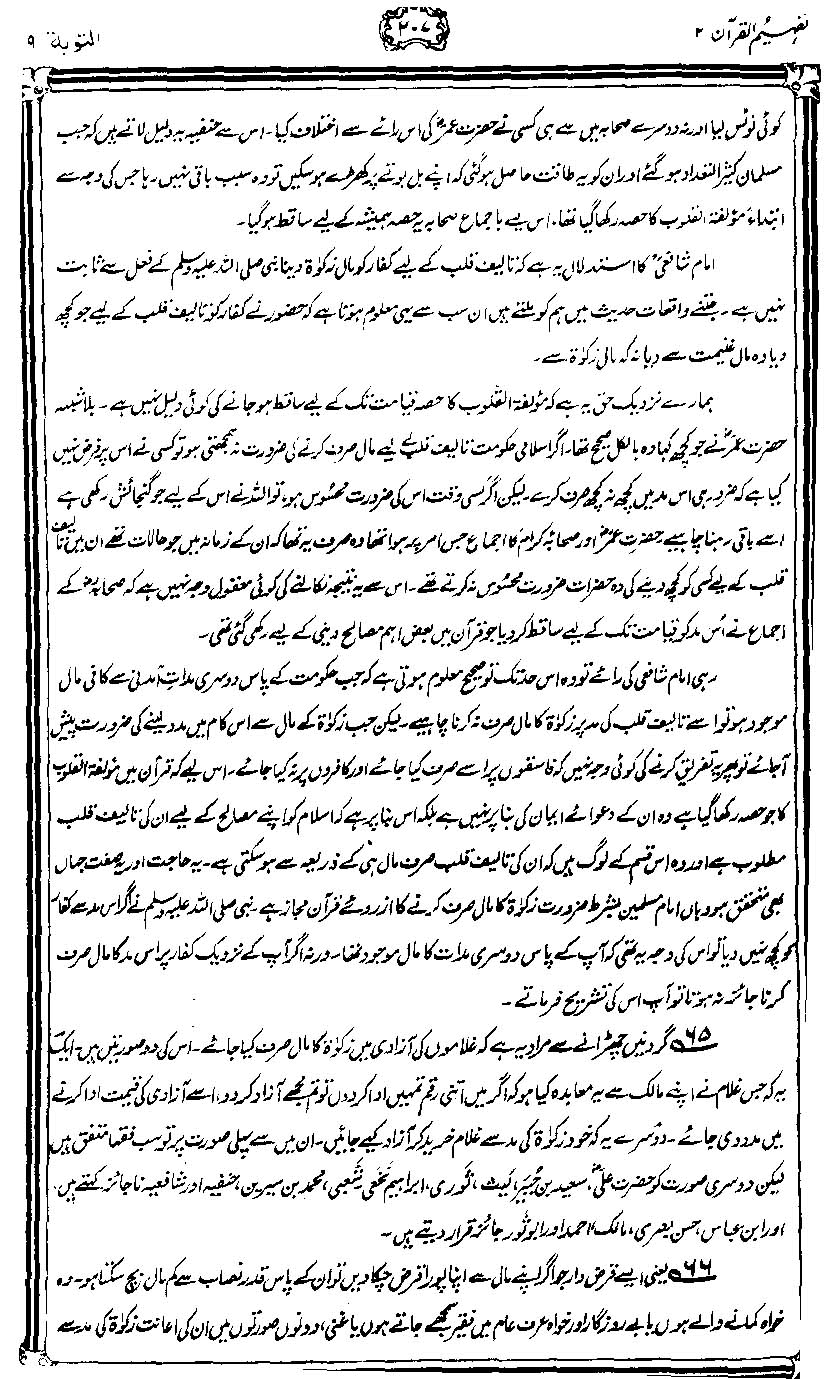 تفہیم القرآن ۲
۲۰۷
التوبۃ ۹
کوئی نوٹس لیا اور نہ دوسرے صحابہ میں سے ہی کسی نے حضرت عمرؓ کی اس رائے سے اختلاف کیا۔ اس سے حنفیہ یہ دلیل لاتے ہیں کہ جب
مسلمان کثیر التعداد ہو گئے اور ان کو یہ طاقت حاصل ہو گئی کہ اپنے بل بوتے پر کھڑے ہو سکیں تو وہ سبب باقی نہیں رہا جس کی وجہ سے
ابتداءً مؤلفۃ القلوب کا حصہ رکھا گیا تھا۔ اس لیے باجماع صحابہ یہ حصہ ہمیشہ کے لیے ساقط ہو گیا۔
امام شافعیؒ کا استدلال یہ ہے کہ تالیف قلب کے لیے کفار کو مال زکوٰۃ دینا نبی صلی اللہ علیہ وسلم کے فعل سے ثابت
نہیں ہے۔ جتنے واقعات حدیث میں ہم کو ملتے ہیں ان سب سے یہی معلوم ہوتا ہے کہ حضور نے کفار کو تالیف قلب کے لیے جو کچھ
دیا وہ مال غنیمت سے دیا نہ کہ مال زکوٰۃ سے۔
ہمارے نزدیک حق یہ ہے کہ مؤلفۃ القلوب کا حصہ قیامت تک کے لیے ساقط ہو جانے کی کوئی دلیل نہیں ہے۔ بلاشبہ
حضرت عمرؓ نے جو کچھ کہا وہ بالکل صحیح تھا۔ اگر اسلامی حکومت تالیف قلب کے لیے مال صرف کرنے کی ضرورت نہ سمجھتی ہو تو کسی نے اس پر فرض نہیں
کیا ہے کہ ضرور ہی اس مد میں کچھ نہ کچھ صرف کرے۔ لیکن اگر کسی وقت اس کی ضرورت محسوس ہو، تو اللہ نے اس کے لیے جو گنجائش رکھی ہے
اسے باقی رہنا چاہیے۔ حضرت عمرؓ اور صحابۂ کرامؓ کا اجماع جس امر پر ہوا تھا وہ صرف یہ تھا کہ ان کے زمانہ میں جو حالات تھے ان میں تالیف
قلب کے لیے کسی کو کچھ دینے کی وہ حضرات ضرورت محسوس نہ کرتے تھے۔ اس سے یہ نتیجہ نکالنے کی کوئی معقول وجہ نہیں ہے کہ صحابہؓ کے
اجماع نے اُس مد کو قیامت تک کے لیے ساقط کر دیا جو قرآن میں بعض اہم مصالح دینی کے لیے رکھی گئی تھی۔
رہی امام شافعی کی رائے تو وہ اس حد تک تو صحیح معلوم ہوتی ہے کہ جب حکومت کے پاس دوسری مداتِ آمدنی سے کافی مال
موجود ہو تو اسے تالیف قلب کی مد پر زکوٰۃ کا مال صرف نہ کرنا چاہیے۔ لیکن جب زکوٰۃ کے مال سے اس کام میں مدد لینے کی ضرورت پیش
آ جائے تو پھر یہ تفریق کرنے کی کوئی وجہ نہیں کہ فاسقوں پر اسے صرف کیا جائے اور کافروں پر نہ کیا جائے۔ اس لیے کہ قرآن میں مؤلفۃ القلوب
کا جو حصہ رکھا گیا ہے وہ ان کے دعوائے ایمان کی بنا پر نہیں ہے بلکہ اس بنا پر ہے کہ اسلام کو اپنے مصالح کے لیے ان کی تالیف قلب
مطلوب ہے اور وہ اس قسم کے لوگ ہیں کہ ان کی تالیف قلب صرف مال ہی کے ذریعہ سے ہو سکتی ہے۔ یہ حاجت اور یہ صفت جہاں
بھی متحقق ہو وہاں امام مسلمین بشرط ضرورت زکوٰۃ کا مال صرف کرنے کا ازروئے قرآن مجاز ہے۔ نبی صلی اللہ علیہ وسلم نے اگر اس مد سے کفار
کو کچھ نہیں دیا تو اس کی وجہ یہ تھی کہ آپ کے پاس دوسری مدات کا مال موجود تھا۔ ورنہ اگر آپ کے نزدیک کفار پر اس مد کا مال صرف
کرنا جائز نہ ہوتا تو آپ اس کی تشریح فرماتے۔
۶۵ گردنیں چھڑانے سے مراد یہ ہے کہ غلاموں کی آزادی میں زکوٰۃ کا مال صرف کیا جائے۔ اس کی دو صورتیں ہیں۔ ایک
یہ کہ جس غلام نے اپنے مالک سے یہ معاہدہ کیا ہو کہ اگر میں اتنی رقم تمہیں ادا کر دوں تو تم مجھے آزاد کر دو، اسے آزادی کی قیمت ادا کرنے
میں مدد دی جائے۔ دوسرے یہ کہ خود زکوٰۃ کی مد سے غلام خرید کر آزاد کیے جائیں۔ ان میں سے پہلی صورت پر تو سب فقہا متفق ہیں
لیکن دوسری صورت کو حضرت علیؓ، سعید بن جُبیر، لیث، ثوری، ابراہیم نخعی، شعبی، محمد بن سیرین، حنفیہ اور شافعیہ ناجائز کہتے ہیں،
اور ابن عباس، حسن بصری، مالک، احمد اور ابو ثور جائز قرار دیتے ہیں۔
۶۶ یعنی ایسے قرض دار جو اگر اپنے مال سے اپنا پورا قرض چکا دیں تو ان کے پاس قدر نصاب سے کم مال بچ سکتا ہو۔ وہ
خواہ کمانے والے ہوں یا بے روزگار اور خواہ عرف عام میں فقیر سمجھے جاتے ہوں یا غنی، دونوں صورتوں میں ان کی اعانت زکوٰۃ کی مد سے